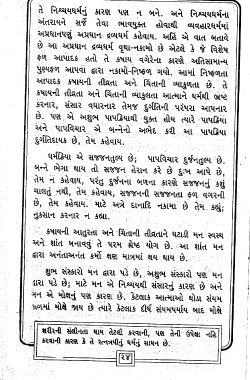 તે નિશ્ચયધર્મનું કારણ પણ ન બને. અને નિશ્ચયધર્મના
અંતરાયને સર્જે તેવા ભાવયુક્ત હોવાથી વ્યવહારધર્મમાં
અપ્રધાનપણું અપ્રધાન દ્રવ્યધર્મ કહેવાય. અહિં એ વાત બતાવે
છે આ અપ્રધાન દ્રવ્યધર્મ વૃથા-નકામો એટલે કે જે વિશેષ
ફળ આપાદક હતો તે કષાય વગેરેના કારણે અતિસામાન્ય
પુણ્યફળ આપવા દ્વારા નકામો-નિષ્ફળ ગયો. આમાં નિષ્ફળતા
આપાદક કષાયની તીવ્રતા અને ચિંતાની વ્યાકુળતા છે. તે
કષાયની તીવ્રતા અને ચિંતાની વ્યાકુલતા આત્માને ધર્મથી ભ્રષ્ટ
કરનાર, સંસાર વધારનાર તેમજ દુર્ગતિની પરંપરા આપનાર
છે. પણ એ અશુભ પાપક્રિયાથી યુક્ત હોય ત્યારે પાપક્રિયા
અને પાપવિચાર એ બન્નેનો અભેદ કરી આ પાપક્રિયા
દુર્ગતિદાયક છે, તેમ કહેવાય.
ધર્મક્રિયા એ સજ્જનતુલ્ય છે; પાપવિચાર દુર્જનતુલ્ય છે.
બન્ને ભેગા થાય તો સજ્જન હેરાન કરે છે દુઃખ આપે છે,
તેમ ન કહેવાય, પરંતુ દુર્જનના બળના કારણે સજ્જનનું કશું
ચાલતું નથી, તેમ કહેવાય, સજ્જનની સજ્જનતા ફળ વગરની
છે, તેમ કહેવાય. માટે અત્રે દાનાદિ નકામા છે તેમ કહ્યું;
નુકસાન કરનાર ન કહ્યા.
કષાયની આતુરતા અને ચિંતાની તીવ્રતાને ઘટાડી મન સ્વસ્થ
અને શાંત બનાવવું તે પરમ શ્રેષ્ઠ યોગ છે. આ શાંત મન
દ્વારા અનંતાઅનંત કર્મો ક્ષણ માત્રમાં ક્ષય થાય છે.
શુભ સંસ્કારો મન દ્વારા પડે છે, અશુભ સંસ્કારો પણ મન
દ્વારા પડે છે; માટે મન એ નિશ્ચયથી સંસારનું કારણ છે અને
મન એ મોક્ષનું પણ કારણ છે. કેટલાક આત્માઓ થોડા સંયમ
પ્રભમાં મોક્ષે જાય છે ત્યારે કેટલાક દીર્ઘ સંયમપર્યાય બાદ મોક્ષે
શરીરની સંલીનતા થાય તેટલી કરવાની, પણ તેની ઉપેક્ષા નહિ
કરવાની કારણ કે તે રત્નત્રયીનું ધર્મનું સાધન છે.
૨૪